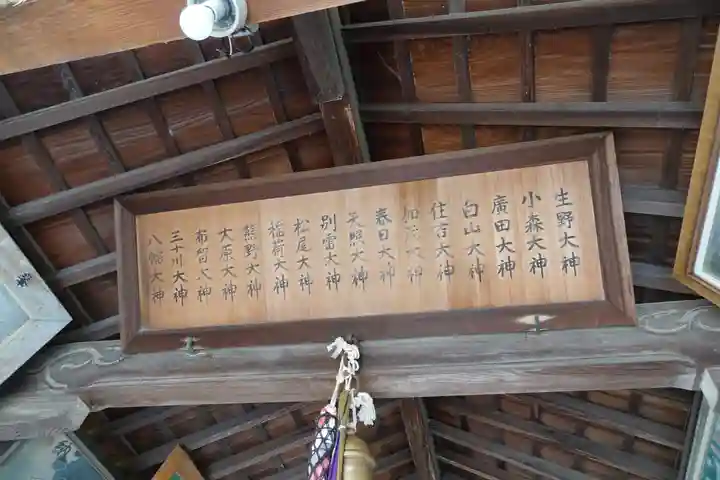 生野大神
小森大神
廣田大神
白山大神
住吉大神
大神
春日大神
天照大神
別雷大神
松尾大神
稲荷大神
熊野大神
大原大神
布留大神
三十川大神
八幡大神